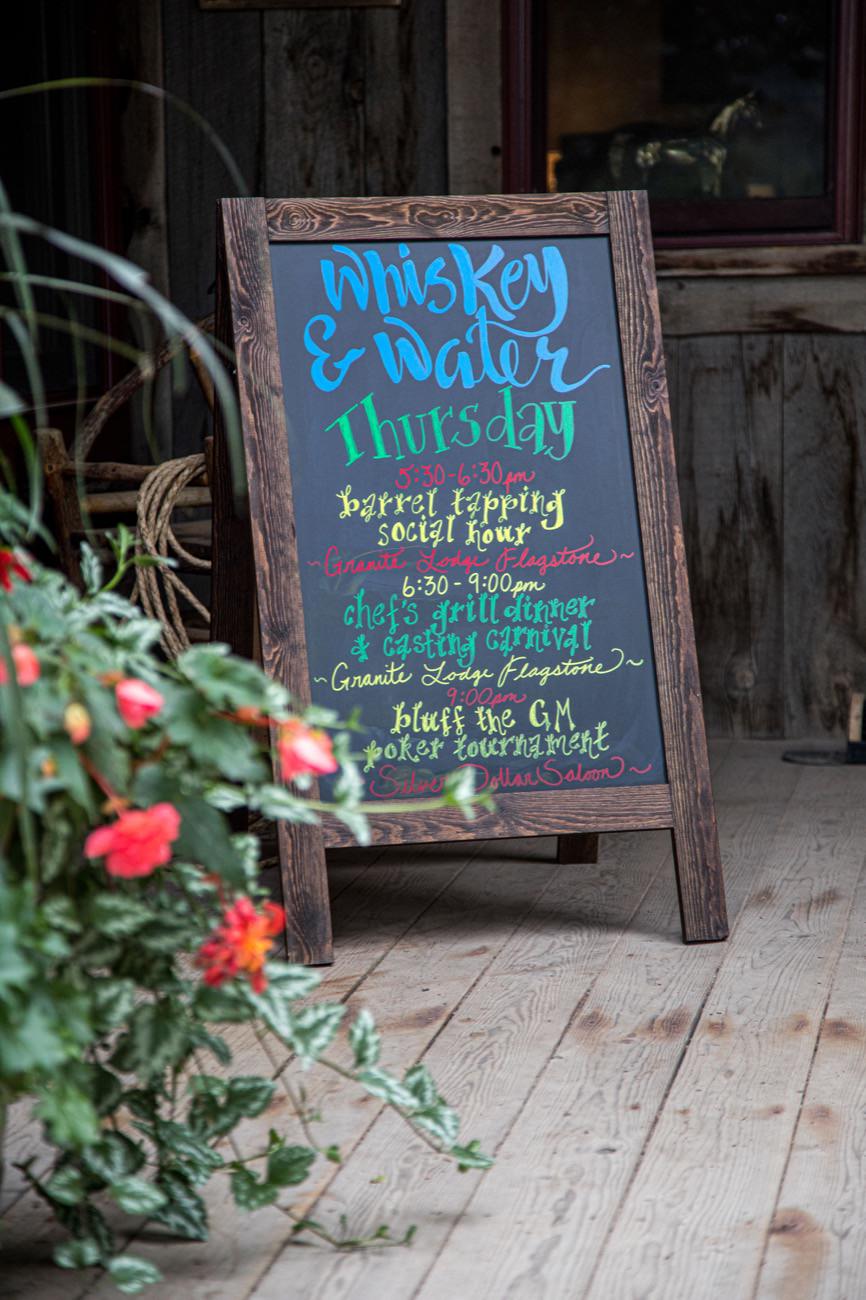 Whiskey
& Water
Thursday
5:30-6:30pm
barrel tapping
social hour
~Granite Lodge Flagstone~
6:30-9:00pm
chef's grill dinner
& casting carnival
~Granite Lodge Flagstone~
9:00pm
bluff the GM
poker tournament
Silver Dollar Saloon~